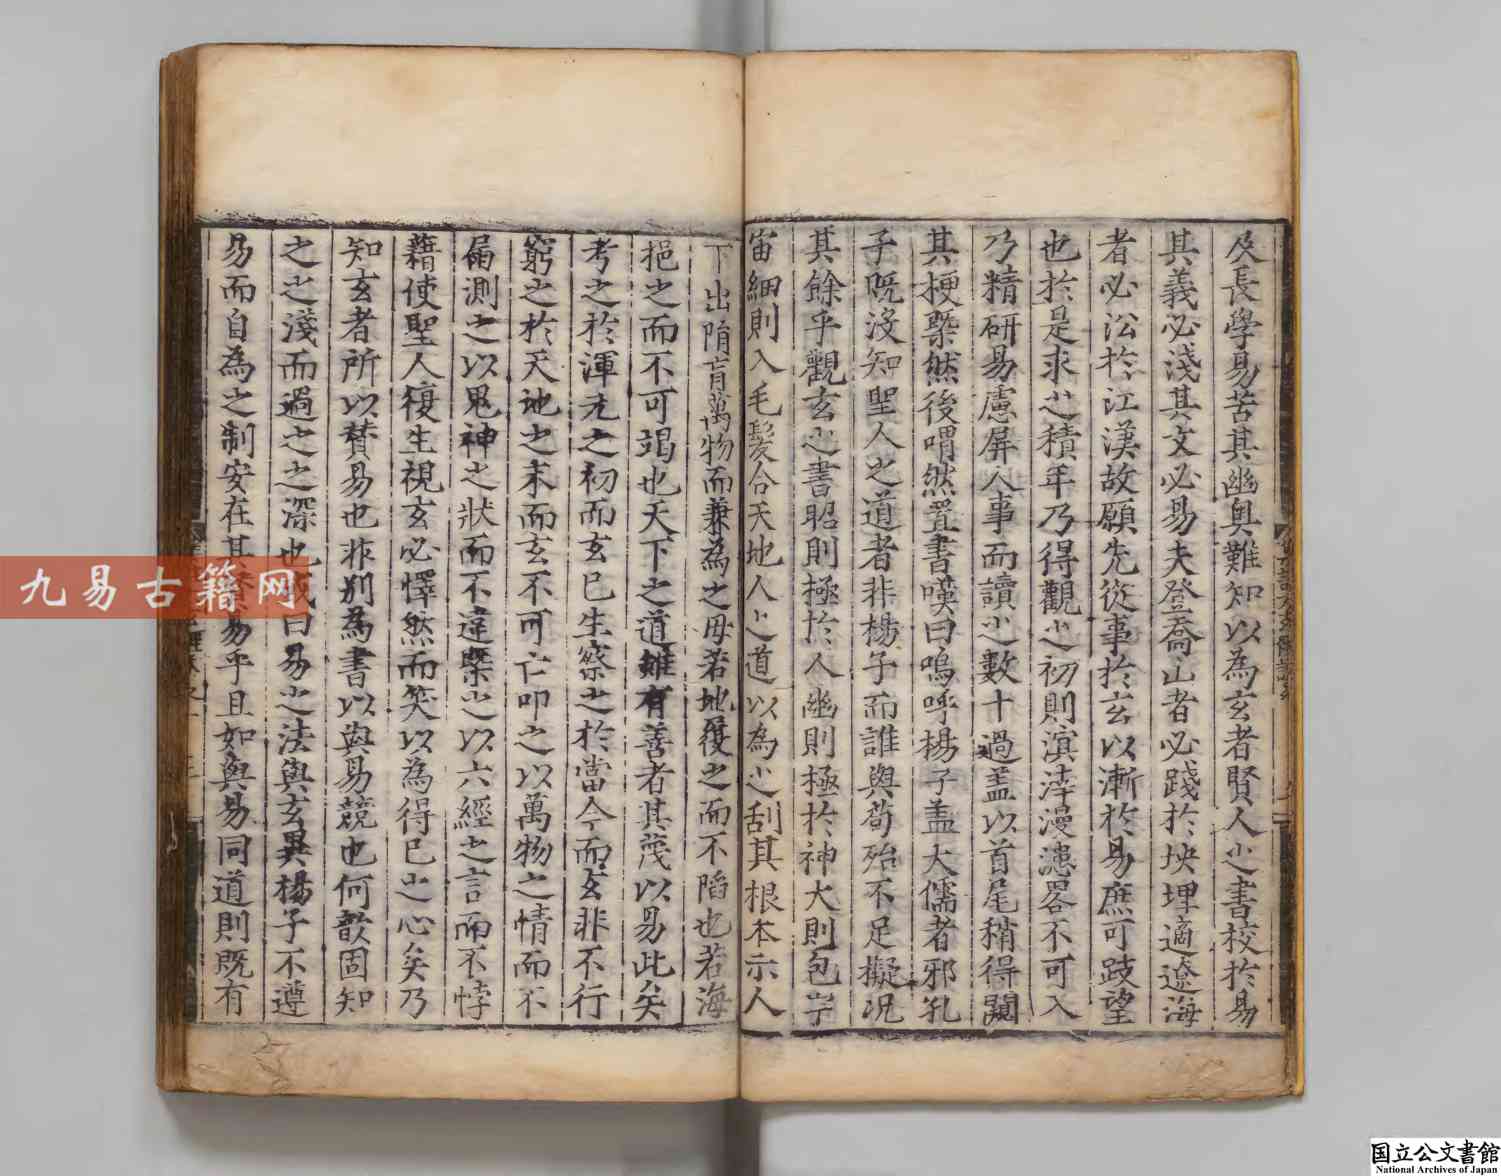 及長學易苦其幽奧難知以為玄者賢人之書校於易
其義必淺其文必易夫登喬山者必踐於块埋適遼海
者必沿於江漢故願先從事於玄以漸於易庶可跂望
也於是求之積年乃得觀之初則溟涬漫漶畧不可入
乃精研易慮屏人事而讀之數十過盖以首尾稍得闚
其梗槩然後喟然置書嘆曰嗚呼楊子盖大儒者邪孔
子既沒知聖人之道者非楊子而誰與荀殆不足擬況
其餘乎觀玄之書昭則極於人幽則極於神大則包宇
宙細則入毛髮合天地人之道以為之刮其根本示人
下出隋肓萬物而兼為之毋若地履之而不陷也若海
挹之而不可竭也天下之道雖有善者其蔑以易此矣
考之於渾元之初而玄已生察之於當今而玄非不行
窮之於天地之末而玄不可亡叩之以萬物之情而不
屚測之以鬼神之狀而不違槩之以六經之言而不悖
藉使聖人復生視玄必懌然而笑以為得已之心矣乃
知玄者所以賛易也非别為書以與易競也何歆固知
之之淺而過之之深也或曰易之法與玄異楊子不遵
易而自為之制安在其賛易乎且如與易同道則既有
九易古籍网
国立公文書館
National Archives of Japan